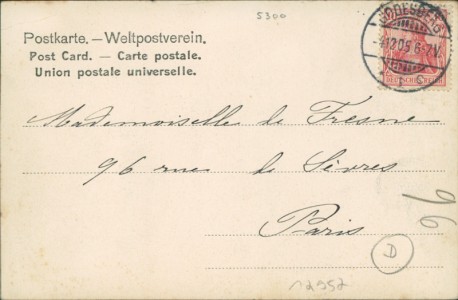 5300
Postkarte. — Weltpostverein.
Post Card. — Carte postale.
Union postale universelle.
GODESBERG
DEUTSCHES REICH
Mademoiselle de Fresne
96 rue de Sèvres
Paris
96
D
12957